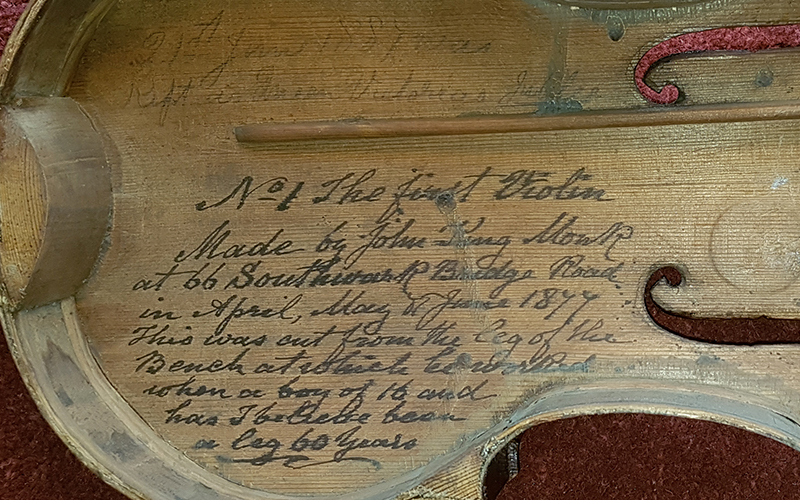 21st June 1887 was
Kept as Queen Victorias Jubilee
No 1 The first Violin
Made by John King Monk
at 66 Southwark Bridge Road
in April, May & June 1877
This was cut from the leg of the
Bench at which he worked
when a boy of 16 and
has I believe been
a leg 60 Years